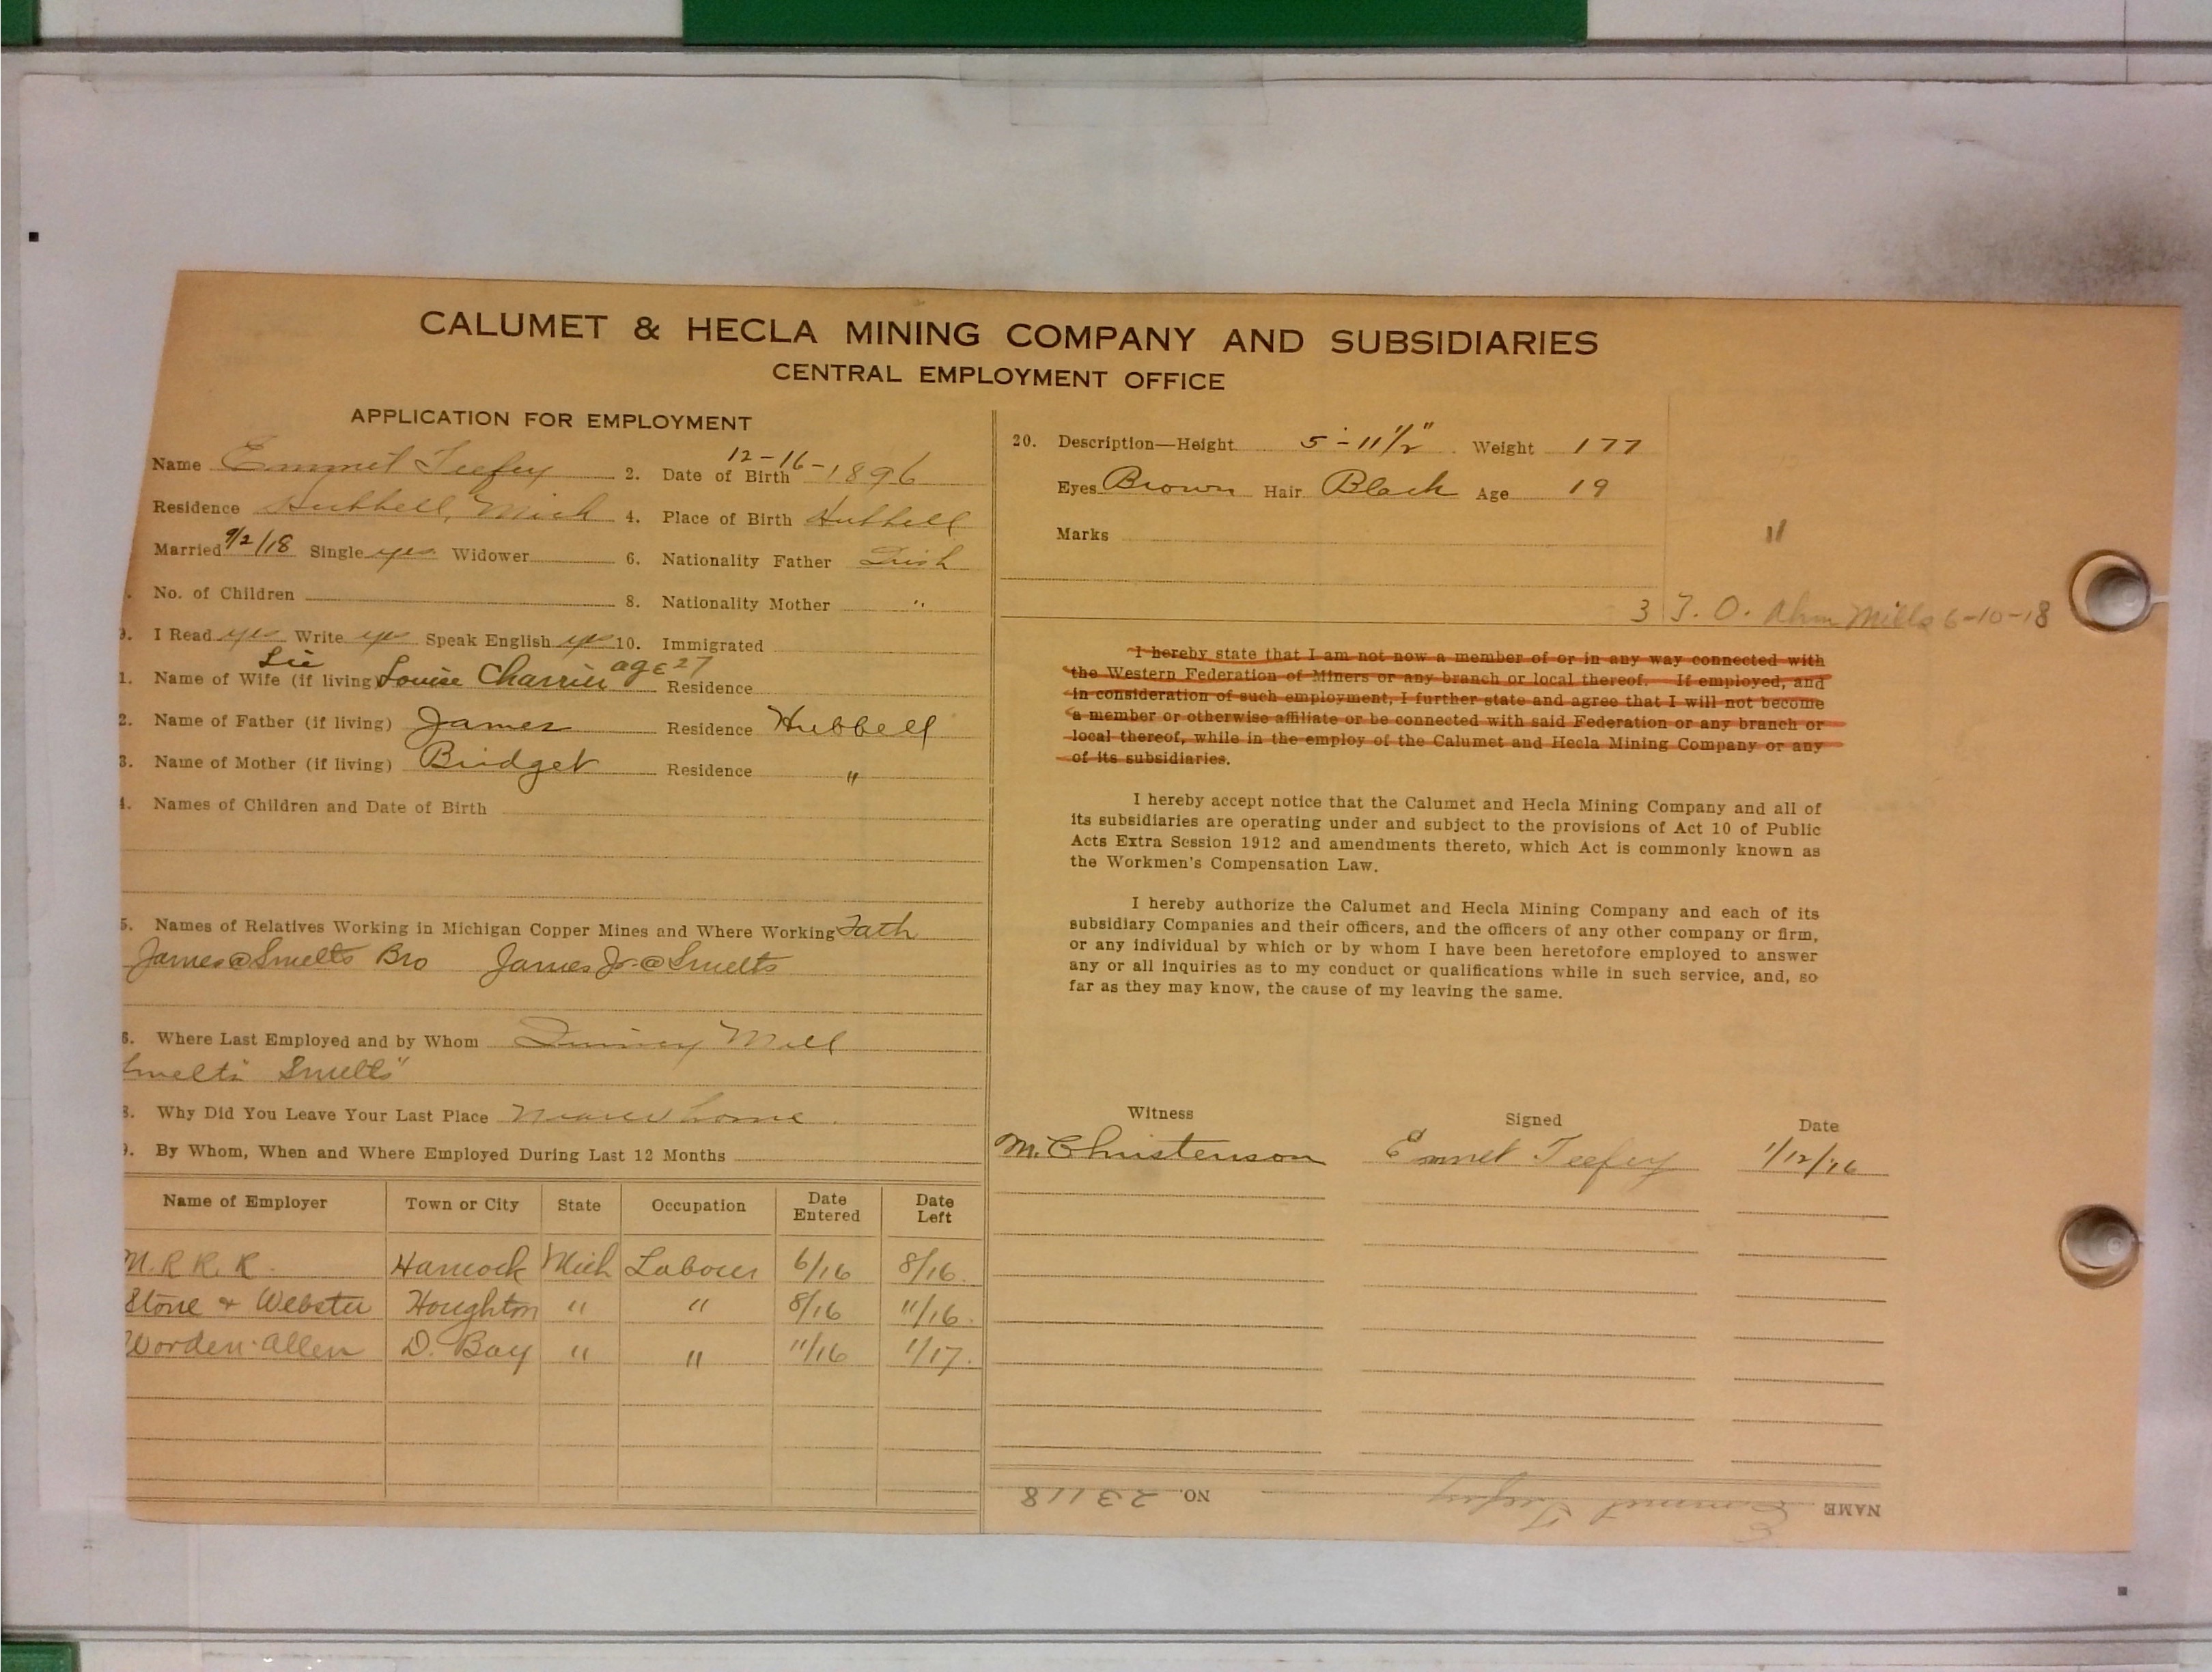 CALUMET & HECLA MINING COMPANY AND SUBSIDIARIES
CENTRAL EMPLOYMENT OFFICE
APPLICATION FOR EMPLOYMENT
Name Emmet Teefey 2. Date of Birth 12-16-1896
Residence Hubbell, Mich 4. Place of Birth Hubbell
Married 9/2/18 Single yes Widower 6. Nationality Father Irish
No. of Children 8. Nationality Mother "
9. I Read yes Write yes Speak English yes 10. Immigrated
Lic
1. Name of Wife (if living) Louise Charrier age 27 Residence
2. Name of Father (if living) James Residence Hubbell
3. Name of Mother (if living) Bridget Residence "
4. Names of Children and Date of Birth
5. Names of Relatives Working in Michigan Copper Mines and Where Working Fath
James @ Smelts Bro James Jr. @ Smelts
6. Where Last Employed and by Whom Quincy Mill
Smelts Smelts"
8. Why Did You Leave Your Last Place Nearer home
9. By Whom, When and Where Employed During Last 12 Months
Name of Employer Town or City State Occupation Date Entered Date Left
M. R. R. R. Hancock Mich Laborer 6/16 8/16.
Stone & Webster Houghton " " 8/16 11/16.
Worden-Allen D. Bay " " 11/16 1/17.
20. Description—Height 5'-11 1/2" Weight 177
Eyes Brown Hair Black Age 19
Marks
11
3 T. O. Ahm Mills 6-10-18
I hereby state that I am not now a member of or in any way connected with
the Western Federation of Miners or any branch or local thereof. If employed, and
in consideration of such employment, I further state and agree that I will not become
a member or otherwise affiliate or be connected with said Federation or any branch or
local thereof, while in the employ of the Calumet and Hecla Mining Company or any
of its subsidiaries.
I hereby accept notice that the Calumet and Hecla Mining Company and all of
its subsidiaries are operating under and subject to the provisions of Act 10 of Public
Acts Extra Session 1912 and amendments thereto, which Act is commonly known as
the Workmen's Compensation Law.
I hereby authorize the Calumet and Hecla Mining Company and each of its
subsidiary Companies and their officers, and the officers of any other company or firm,
or any individual by which or by whom I have been heretofore employed to answer
any or all inquiries as to my conduct or qualifications while in such service, and, so
far as they may know, the cause of my leaving the same.
Witness Signed Date
M. Christenson Emmet Teefey 1/12/16
NAME Emmet Teefey NO. 23118